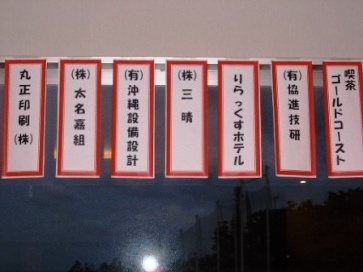 喫茶 ゴールドコースト
(有)協進技研
りらっくすホテル
(株)三晴
(有)沖縄設備設計
(株)太名嘉組
丸正印刷(株)